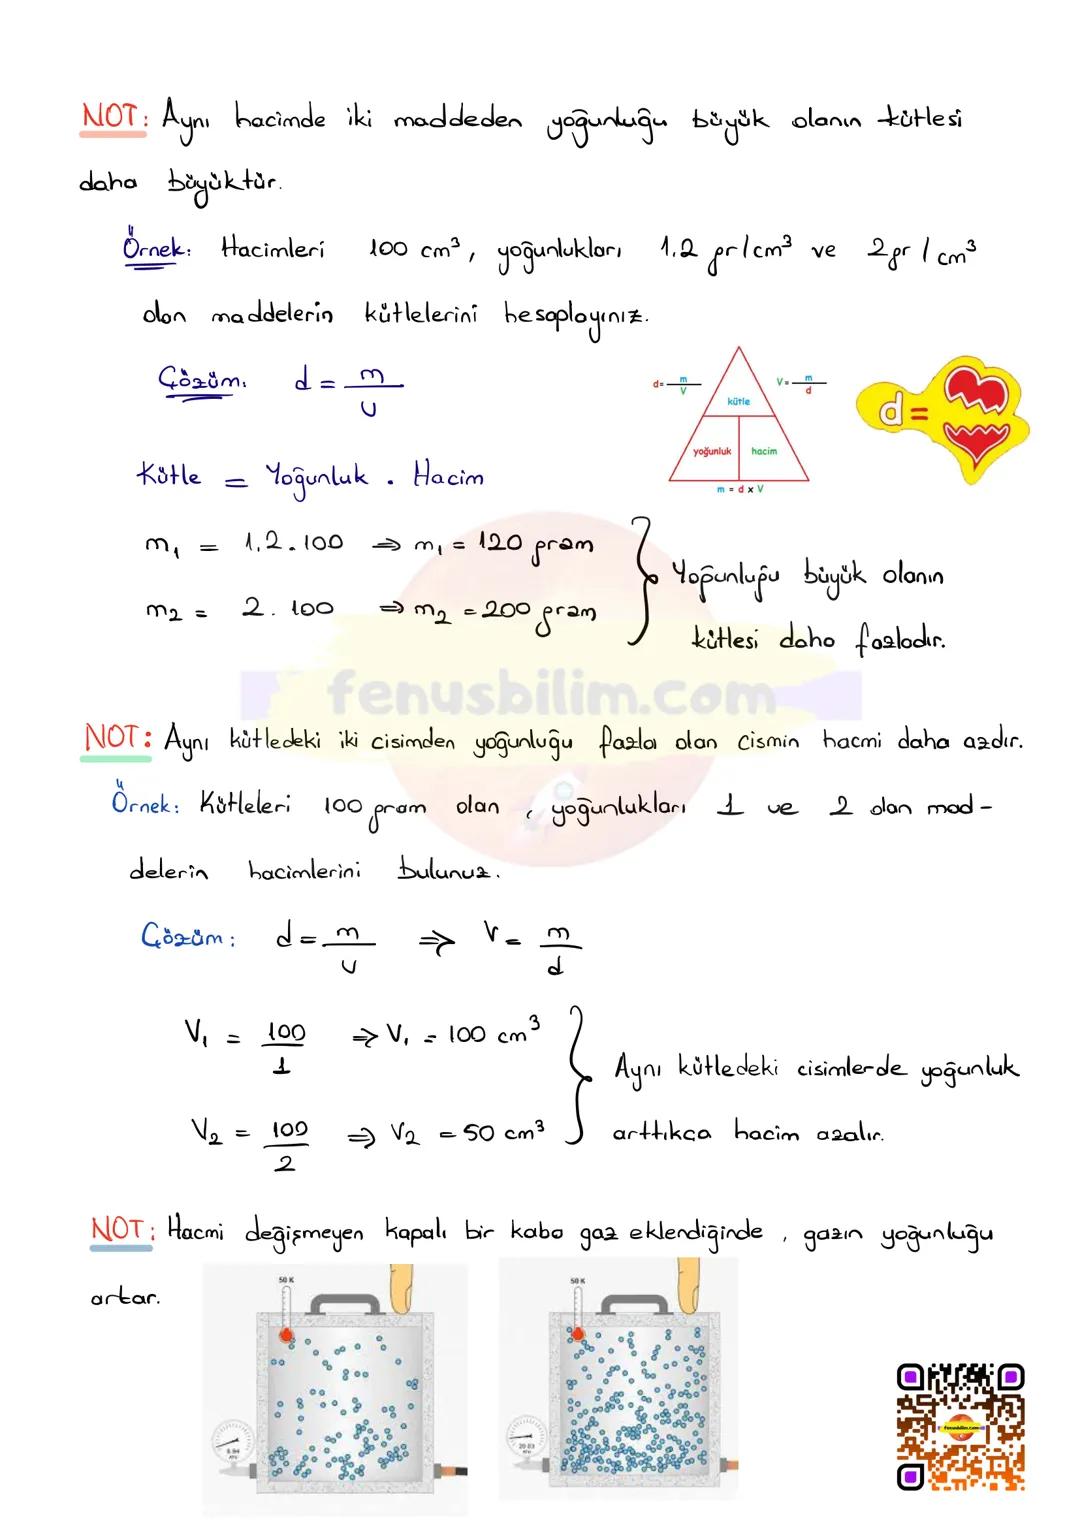 NOT: Aynı hacimde iki maddeden yoğunluğu büyük olanın kütlesi
daha büyüktür.
Örnek: Hacimleri 100 cm³, yoğunlukları 1.2 gr/cm³ ve 2gr/cm³
olan maddelerin kütlelerini hesaplayınız.
Çözüm: d = m/v
d= m/V
V= m/d
kütle
yoğunluk hacim
m = d x V
d=
Kütle = Yoğunluk . Hacim
m₁ = 1.2 . 100 ⇒ m₁ = 120 gram
m₂ = 2 . 100 ⇒ m₂ = 200 gram
Yoğunluğu büyük olanın
kütlesi daha fazladır.
fenusbilim.com
NOT: Aynı kütledeki iki cisimden yoğunluğu fazla olan cismin hacmi daha azdır.
Örnek: Kütleleri 100 gram olan, yoğunlukları 1 ve 2 olan mad-
delerin hacimlerini bulunuz.
Çözüm: d = m/v ⇒ V = m/d
V₁ = 100/1 ⇒ V₁ = 100 cm³
V₂ = 100/2 ⇒ V₂ = 50 cm³
Aynı kütledeki cisimlerde yoğunluk
arttıkça hacim azalır.
NOT: Hacmi değişmeyen kapalı bir kaba gaz eklendiğinde, gazın yoğunluğu
artar.
50 K
50 K